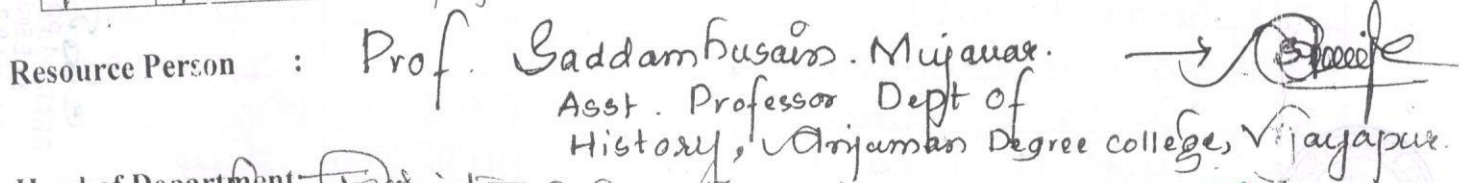 Resource Person : Prof. Saddamhusain. Mujawar. →
Asst. Professor Dept of
History, Anjuman Degree college, Vijayapur.
Head of Department